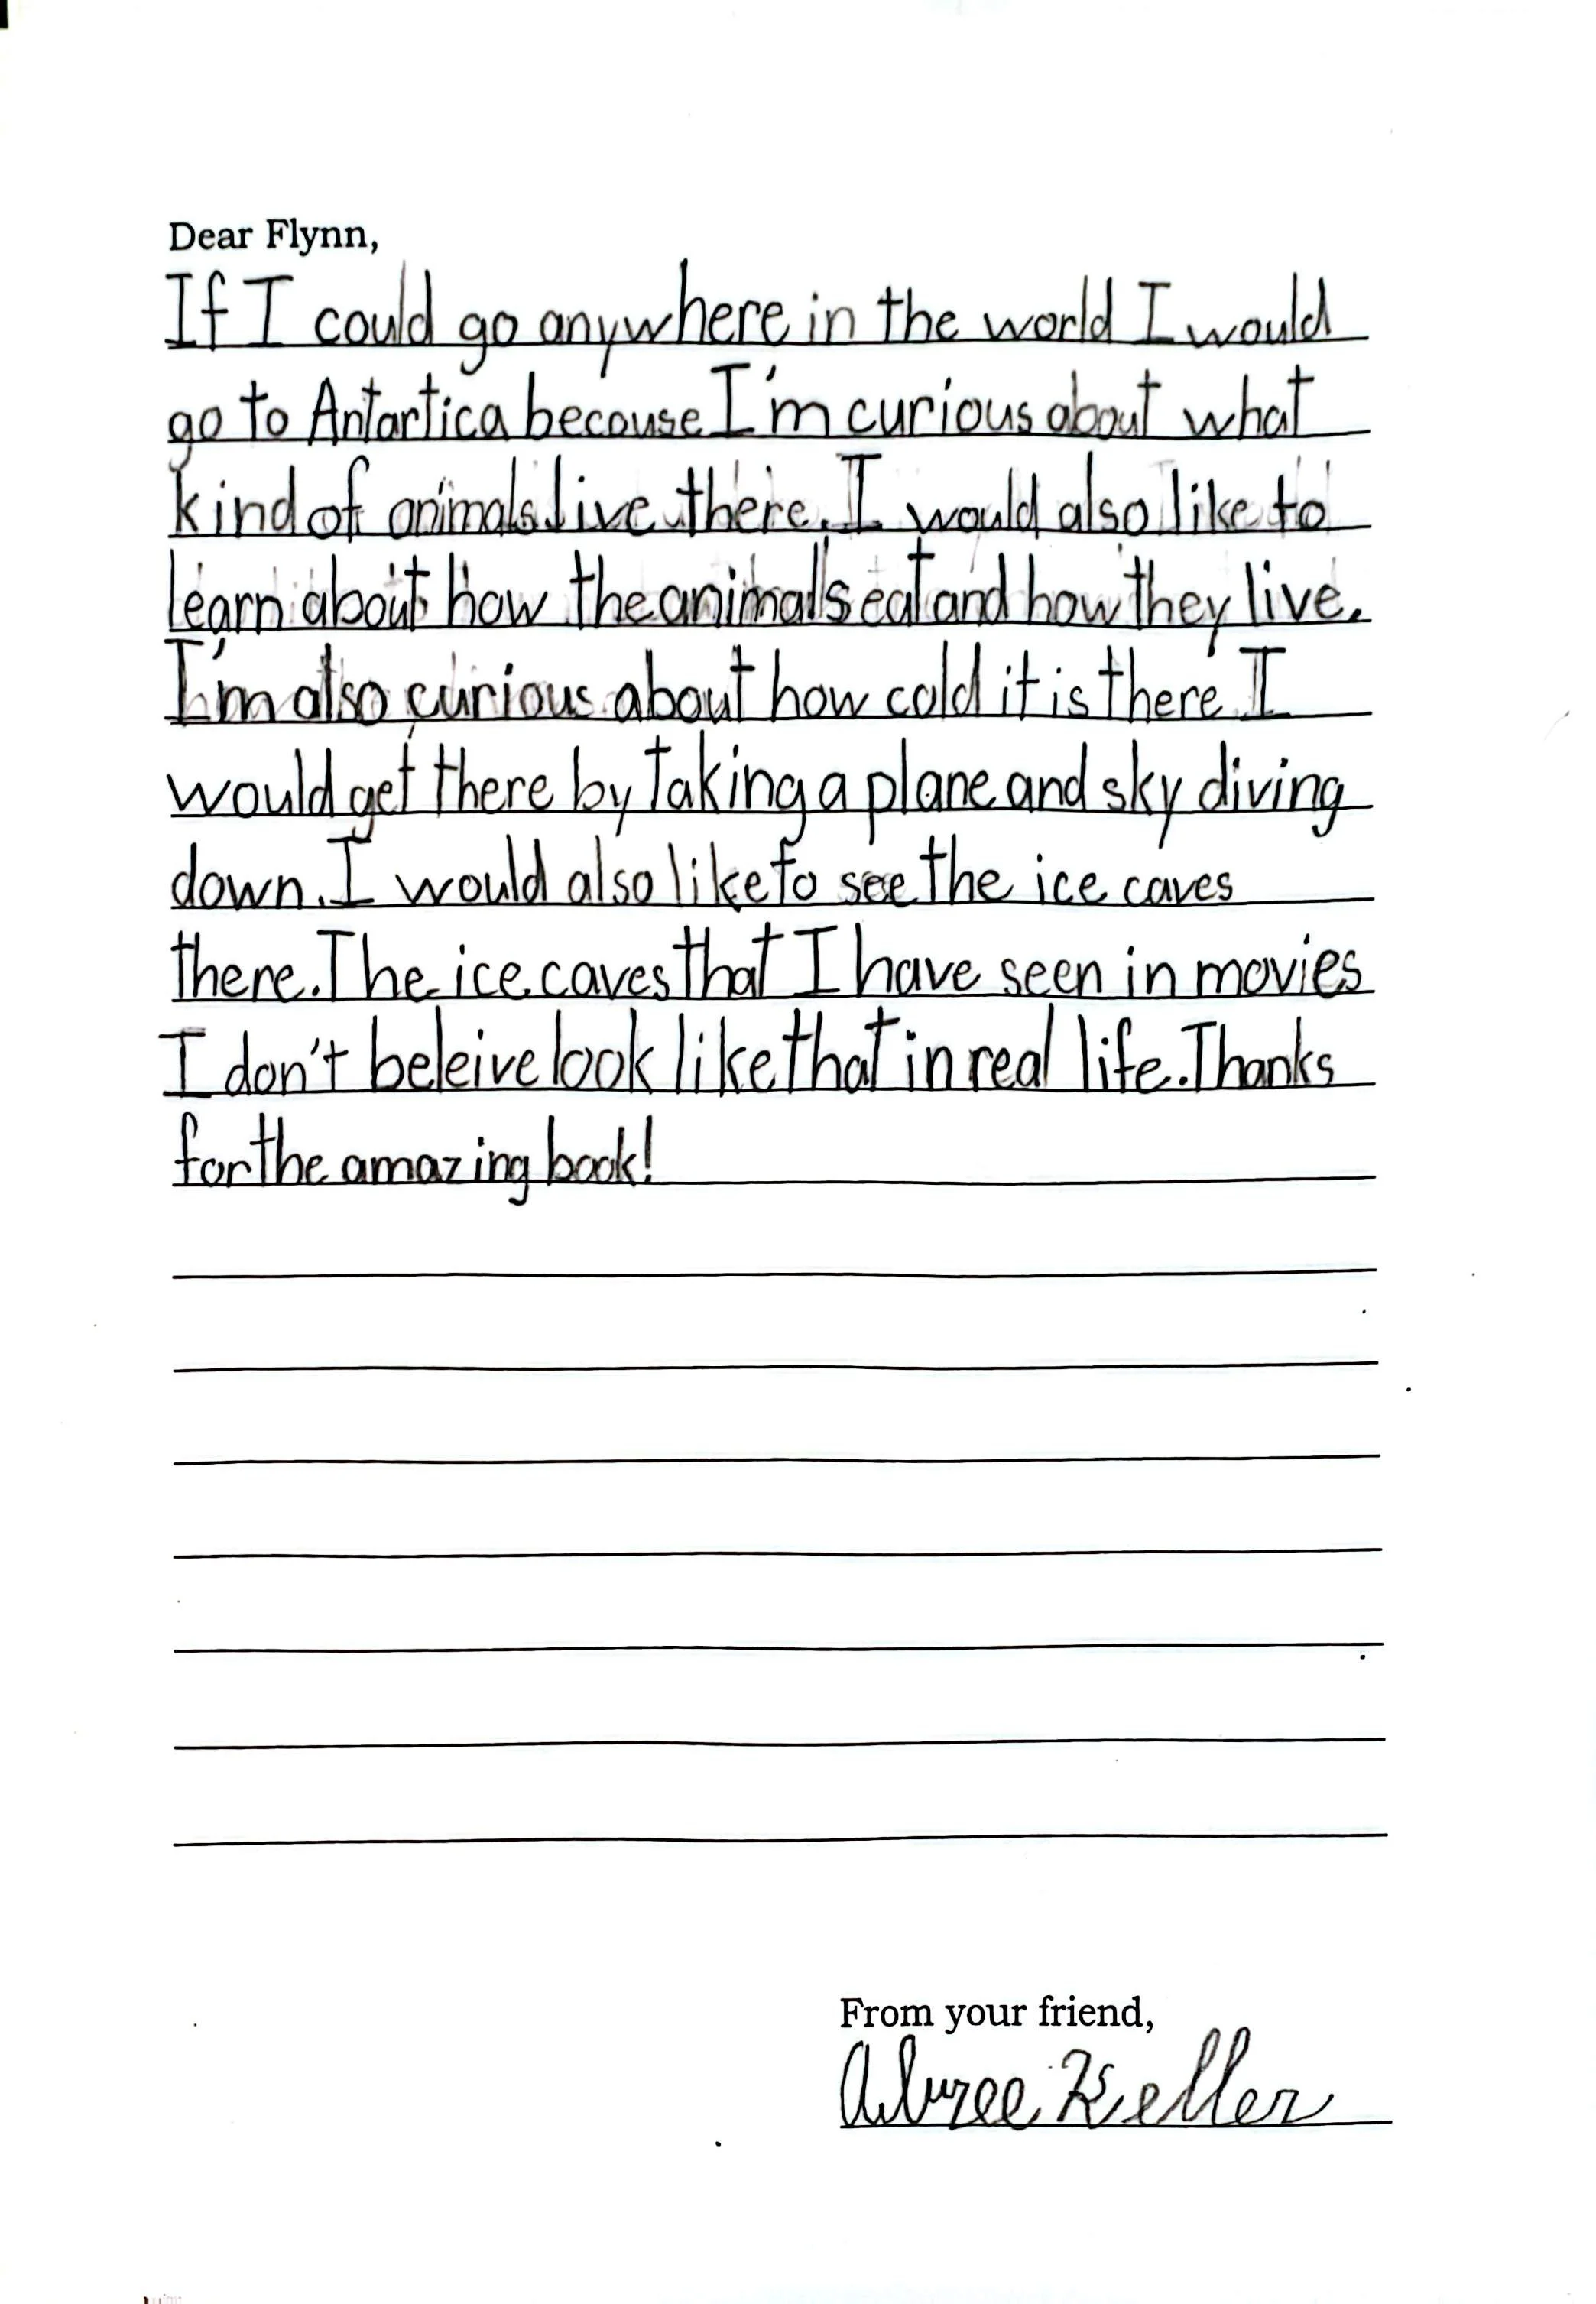 Dear Flynn,
If I could go anywhere in the world I would
go to Antartica because I'm curious about what
kind of animals live there. I would also like to
learn about how the animals eat and how they live.
I'm also curious about how cold it is there I
would get there by taking a plane and sky diving
down. I would also like to see the ice caves
there. The ice caves that I have seen in movies
I don't beleive look like that in real life. Thanks
for the amazing book!
From your friend,
Keller